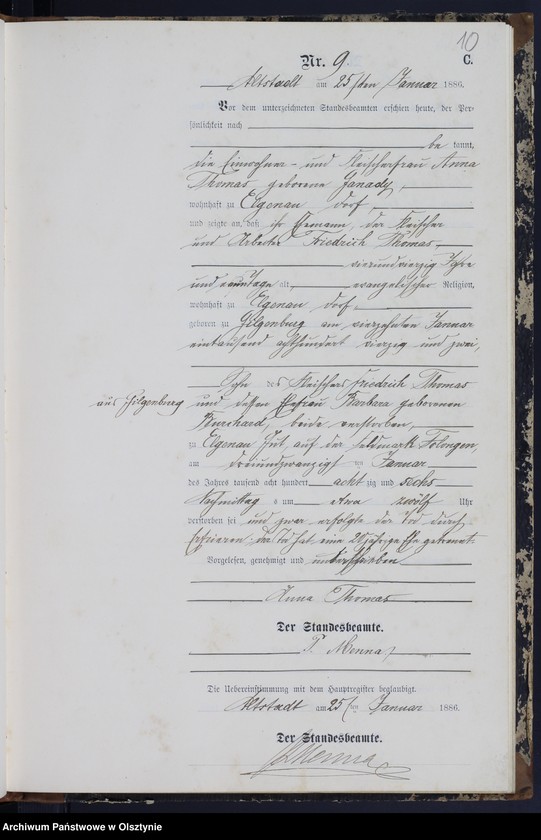 10
Nr. 9. C.
Altstadt am 25sten Januar 1886.
Vor dem unterzeichneten Standesbeamten erschien heute, der Per-
sönlichkeit nach
be kannt,
die Einwohner- und Fleischerfrau Anna
Thomas geborene
wohnhaft zu Elgenau dorf,
und zeigte an, daß ihr Ehemann, der Fleischer
und Arbeiter Friedrich Thomas,
vierundvierzig Jahre
und alt, evangelischer Religion,
wohnhaft zu Elgenau dorf,
geboren zu Gilgenburg am vierzehnten Januar
eintausend achthundert vierzig und zwei,
Sohn des Fleischers Friedrich Thomas
aus Gilgenburg
und dessen Ehefrau Barbara geborenen
beide verstorben,
zu Elgenau Gut, auf der Feldmark
am dreiundzwanzigst en Januar
des Jahres tausend acht hundert acht zig und sechs
Nachmittag s um etwa zwölf Uhr
verstorben sei und zwar erfolgte der Tod durch
Erfrieren, der Tod hat eine 20jährige Ehe getrennt.
Vorgelesen, genehmigt und unterschrieben
Anna Thomas
Der Standesbeamte.
Menna
Die Uebereinstimmung mit dem Hauptregister beglaubigt.
Altstadt am 25 ten Januar 1886.
Der Standesbeamte.
Menna
Archiwum Państwowe w Olsztynie